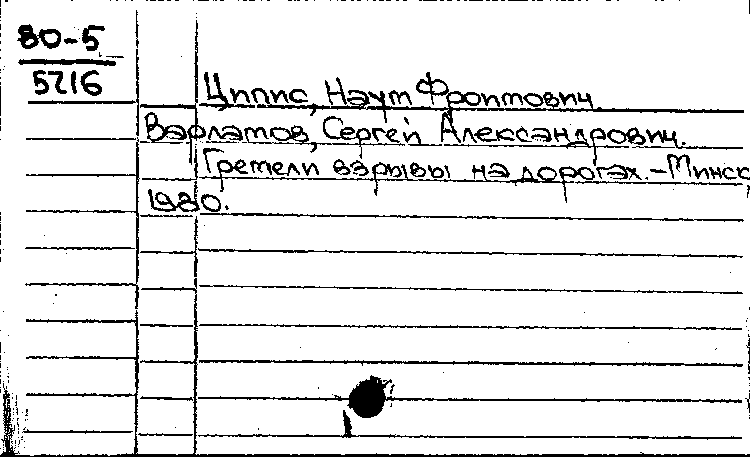 80-5
5216
Ципис, Наум Фроимович.
Варламов, Сергей Александрович.
Гремели взрывы на дорогах.-Минск
1980.